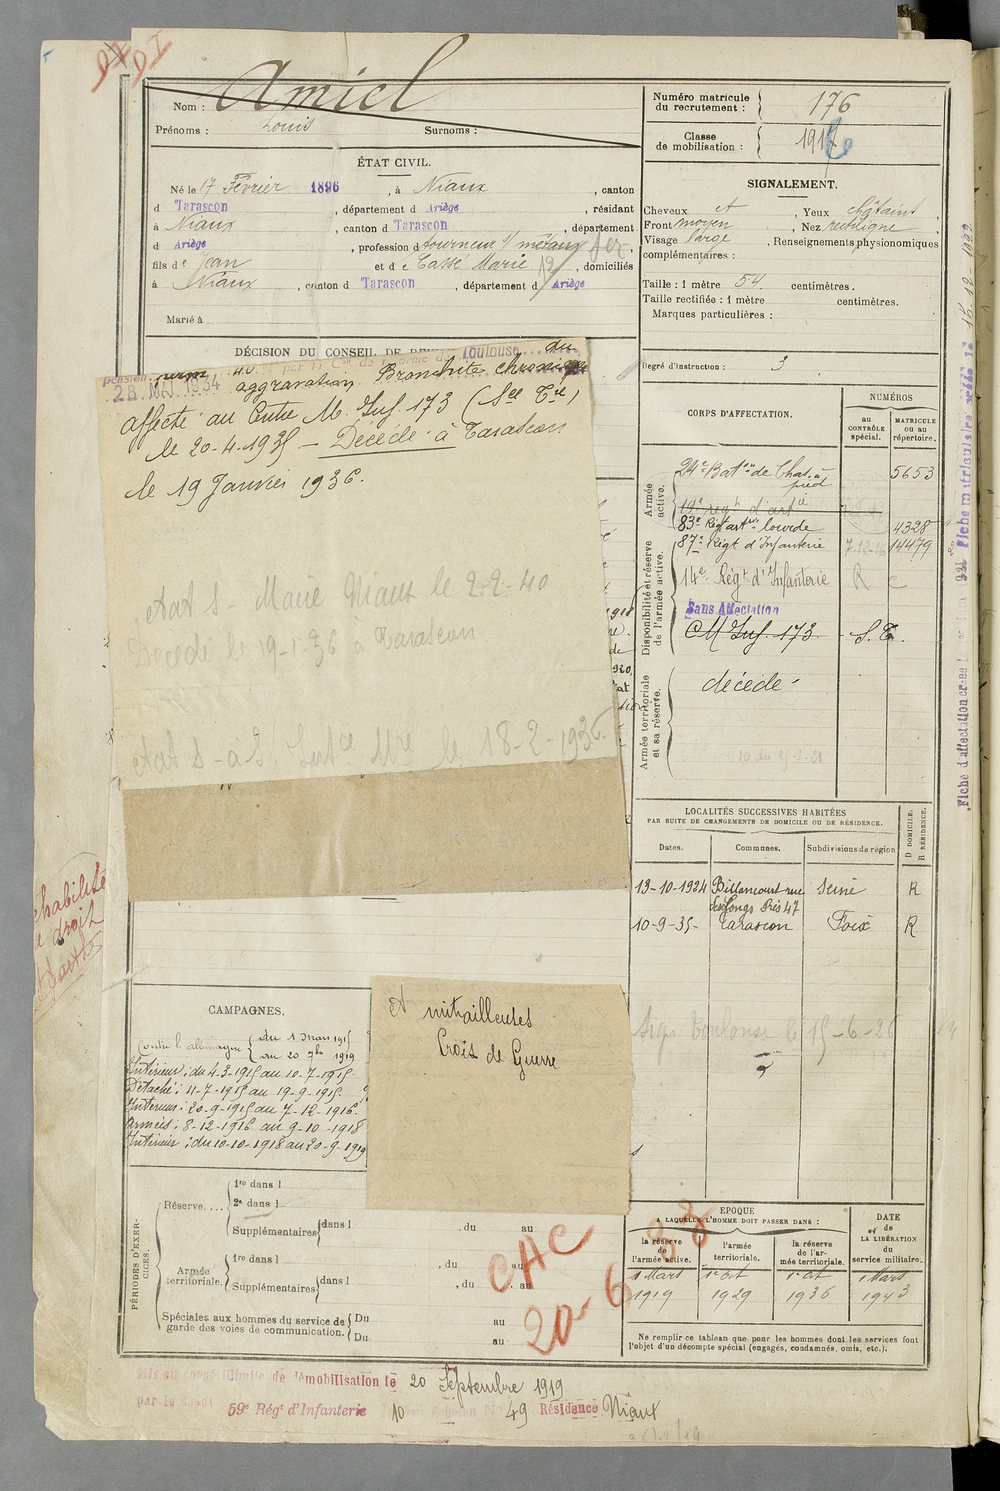 DI DI
Nom : Amiel
Prénoms : Louis Surnoms :
ÉTAT CIVIL.
Né le 17 Février 1896, à Niaux, canton
d Tarascon, département d Ariège, résidant
à Niaux, canton d Tarascon, département
d Ariège, profession d tourneur s/ métaux
fils de Jean et de Cassé Marie, domiciliés
à Niaux, canton d Tarascon, département d Ariège
Marié à
DÉCISION DU CONSEIL DE
Numéro matricule
du recrutement : 176
Classe
de mobilisation : 1916
SIGNALEMENT.
Cheveux ct, Yeux châtains,
Front moyen, Nez rectiligne,
Visage large, Renseignements physionomiques
complémentaires :
Taille : 1 mètre 54 centimètres.
Taille rectifiée : 1 mètre centimètres.
Marques particulières :
Degré d'instruction : 3
Toulouse du
28 MAI 1934 aggravation. Bronchite chronique
affecté au Centre M. Inf. 173 (Sce Tre)
le 20-4-1935 - Décédé à Tarascon
le 19 Janvier 1936.
Mairie Niaux le 2-2-40
Décédé le 19-1-36 à Tarascon
le 18-2-1936.
CORPS D'AFFECTATION.
NUMÉROS
au
CONTRÔLE
spécial.
MATRICULE
OU AU
répertoire.
Armée
active.
24e Baton de Chas. à pied 5653
19e régt d'artie
83e Régt artie lourde 4328
87e Régt d'Infanterie 7-12-16 14479
Disponibilité et réserve
de l'armée active.
14e Régt d'Infanterie R c
Sans Affectation
CM Inf. 173. S.T.
Armée territoriale
et sa réserve.
décédé
LOCALITÉS SUCCESSIVES HABITÉES
PAR SUITE DE CHANGEMENTS DE DOMICILE OU DE RÉSIDENCE.
Dates. Communes. Subdivisions de région
D DOMICILE.
R RÉSIDENCE.
13-10-1924 Billancourt rue Seine R
des Longs Prés 47
10-9-35- Tarascon Foix R
Toulouse le 15-6-26
CAMPAGNES.
Contre l'allemagne du 1 mars 1915
au 20 7bre 1919
Intérieur : du 4-3-1915 au 10-7-1915.
Détaché : 11-7-1915 au 19-9-1915.
Intérieur : 20-9-1915 au 7-12-1916.
Armées : 8-12-1916 au 9-10-1918
Intérieur : du 10-10-1918 au 20-9-1919
Ct mitrailleuses
Croix de Guerre
PÉRIODES D'EXERCICES.
Réserve....
1re dans l
2e dans l
Supplémentaires dans l , du au
Armée
territoriale.
1re dans l , du au
Supplémentaires dans l , du au
Spéciales aux hommes du service de
garde des voies de communication.
Du au
Du au
CAC
20-6 38
EPOQUE
A LAQUELLE L'HOMME DOIT PASSER DANS :
la réserve
de
l'armée active.
l'armée
territoriale.
la réserve
de l'armée territoriale.
DATE
de
LA LIBÉRATION
du
service militaire.
1 Mars 1er Oct 1er Oct 1 Mars
1919 1929 1936 1943
Ne remplir ce tableau que pour les hommes dont les services font
l'objet d'un décompte spécial (engagés, condamnés, omis, etc.).
Mis en congé illimité de démobilisation le 20 Septembre 1919
par le dépôt 59e Régt d'Infanterie 10 Echelon No 49 Résidence Niaux